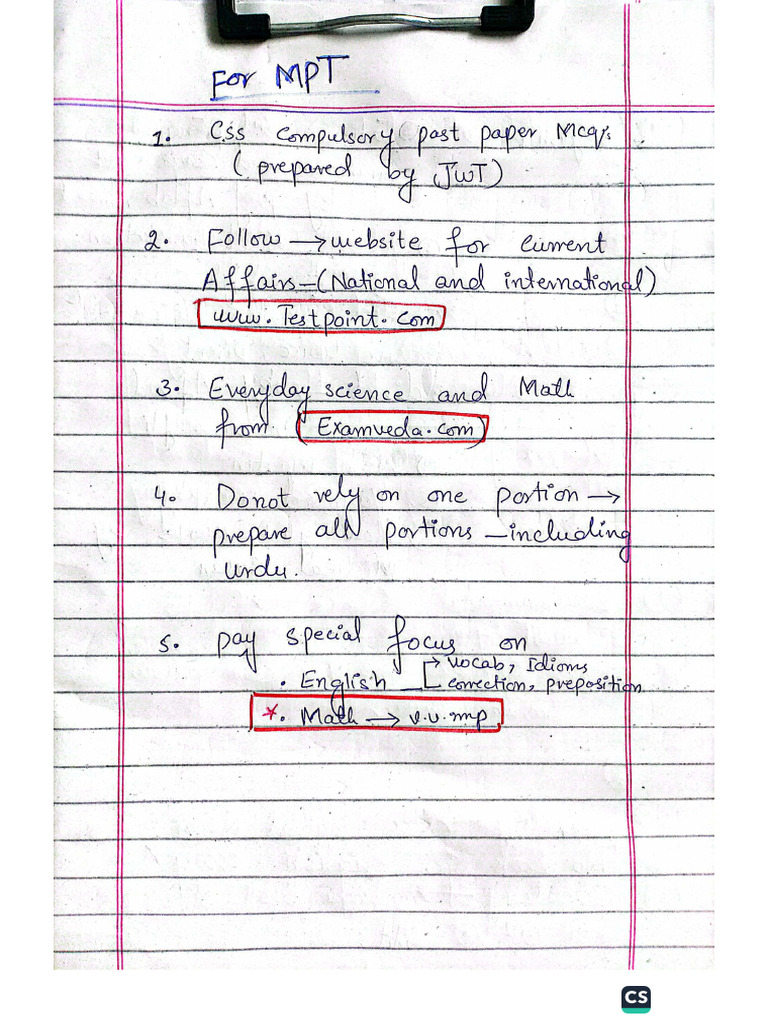 For MPT
1. Css Compulsory past paper Mcq's.
( prepared by JWT)
2. Follow → website for current
Affairs-(National and international)
www.Testpoint.com
3. Everyday science and Math
from (Examveda.com)
4. Donot rely on one portion →
prepare all portions - including
urdu.
5. pay special focus on
• English → vocab, Idioms
correction, preposition
*• Math → v.v.imp
CS